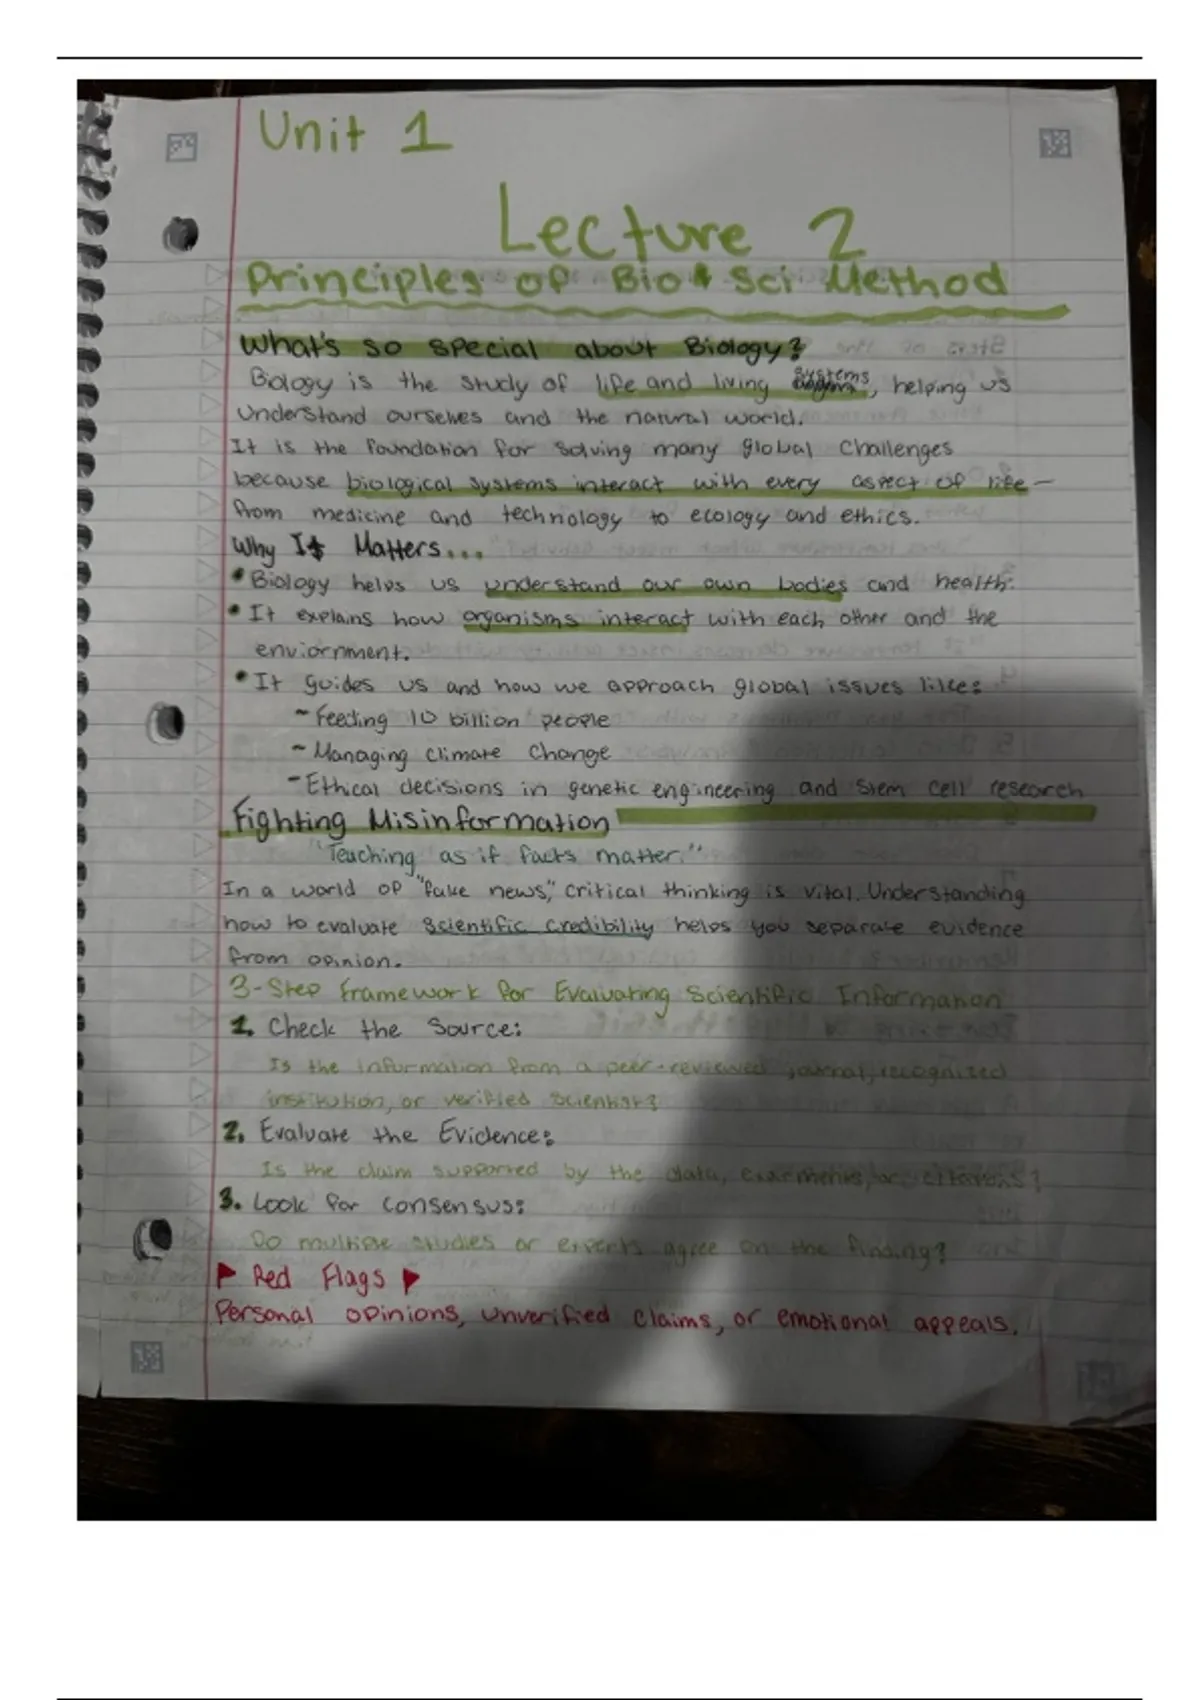 Unit 1
Lecture 2
Principles of Bio & Sci Method
What's so special about Biology?
Biology is the study of life and living systems, helping us
understand ourselves and the natural world.
It is the foundation for solving many global challenges
because biological systems interact with every aspect of life —
from medicine and technology to ecology and ethics.
Why It Matters...
• Biology helps us understand our own bodies and health.
• It explains how organisms interact with each other and the
enviornment.
• It guides us and how we approach global issues like:
~ Feeding 10 billion people
~ Managing climate change
- Ethical decisions in genetic engineering and stem cell research
Fighting Misinformation
"Teaching as if facts matter."
In a world of "fake news," critical thinking is vital. Understanding
how to evaluate scientific credibility helps you separate evidence
from opinion.
3-Step Framework for Evaluating Scientific Information
1. Check the Source:
Is the information from a peer-reviewed journal, recognized
institution, or verified scientist?
2. Evaluate the Evidence:
Is the claim supported by the data, or
3. Look for Consensus:
Do multiple studies or experts agree on the finding?
Red Flags
Personal opinions, unverified claims, or emotional appeals.